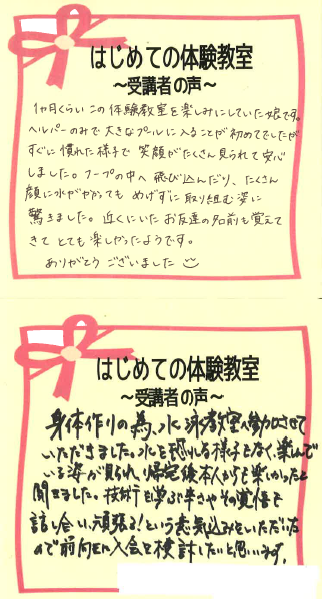 はじめての体験教室
～受講者の声～
1か月くらいこの体験教室を楽しみにしていた娘です。
ヘルパーのみで大きなプールに入ることが初めてでしたが
すぐに慣れた様子で笑顔がたくさん見られて安心
しました。フープの中へ飛び込んだり、たくさん
顔に水がかかってもめげずに取り組む姿に
驚きました。近くにいたお友達の名前も覚えて
きてとても楽しかったようです。
ありがとうございました
はじめての体験教室
～受講者の声～
身体作りの為、水泳教室へ参加させて
いただきました。水を恐れる様子もなく、楽しんで
いる姿が見られ、帰宅後本人からも楽しかったと
聞きました。技術を学ぶ辛さやその覚悟を
話し合い、頑張る!という意気込みをいただいた
ので前向きに入会を検討したいと思います。